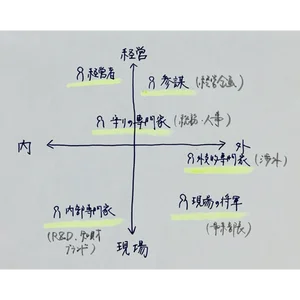 経営
経営者
参謀(経営企画)
守りの専門家(総務・人事)
内
外
外交的専門家(渉外)
内部専門家
(R&D、知財
ブランド)
現場の将軍
(事業部長)
現場